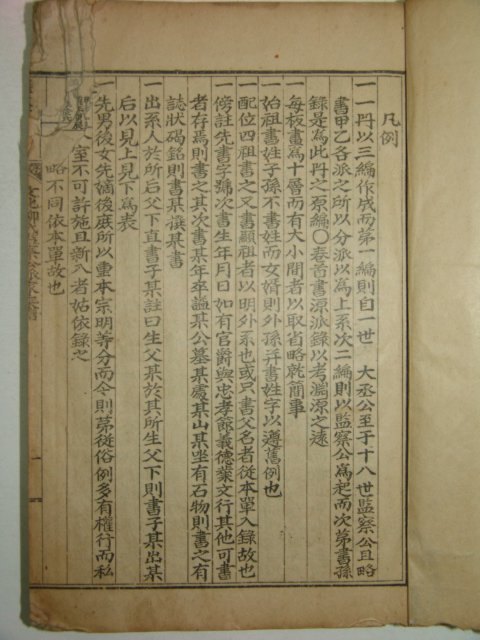 凡例
一一丹以三編作成而第一編則自一世　大丞公至于十八世監察公且略
書甲乙各派之所以分派以爲上系次二編則以監察公爲起而次第書孫
錄是爲此丹之原編〇卷首書源派錄以考淵源之遠
一每板畫爲十層而有大小間者以取省略就簡事
始祖書姓子孫不書姓而女婿則外孫幷書姓字以遵舊例也
一配位四祖書之又書顯祖者以明外系也或只書父名者從本單入錄故也
一傍註先書字號次書生年月日如有官爵與忠孝節義德業文行其他可書
者存焉則書之其次書某年卒謚某公墓某處某山某坐有石物則書之有
誌狀碣銘則書某撰某書
一出系人於所后父下直書子某註曰生父某於其所生父下則書子某出某
后以見上見下爲表
一先男後女先嫡後庶所以重本宗明等分而今則第從俗例多有權行而私
室不可許施且新入者姑依錄之
略不同依本單故也